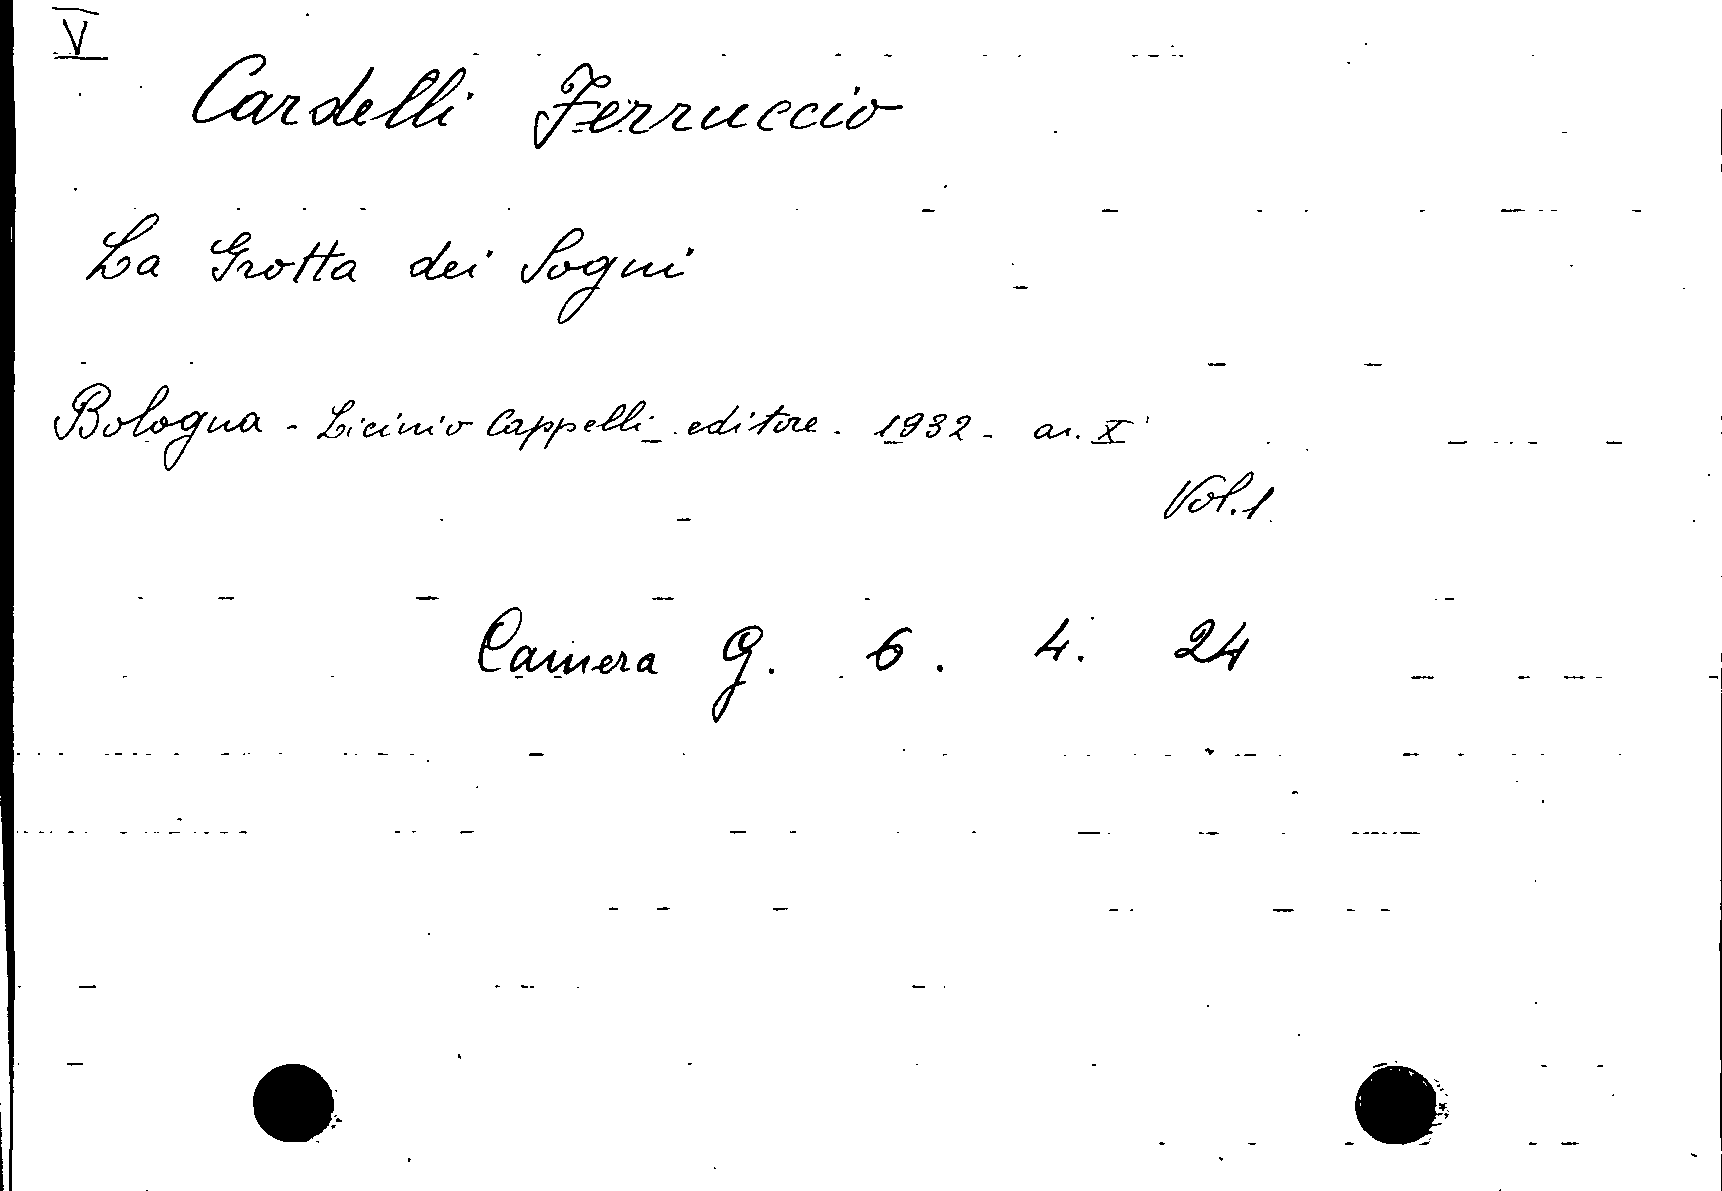 V
Cardelli Ferruccio
La Grotta dei Sogni
Bologna - Licinio Cappelli - editore. 1932 - an. X
Vol. 1
Camera G. 6. 4. 24